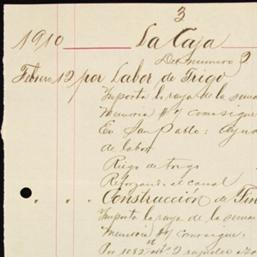 3
1910 La Caja
Del numero 9
Febrero 12 por Labor de Trigo
Importo la raya de la sema
Memoria #4 y consigue
En San Pablo: Ayud
de labor
Riego de trigo
Reforzar el canal
Construcción de Fin
Importo la raya de la seman
Memoria #4 consigue.
Por 1082